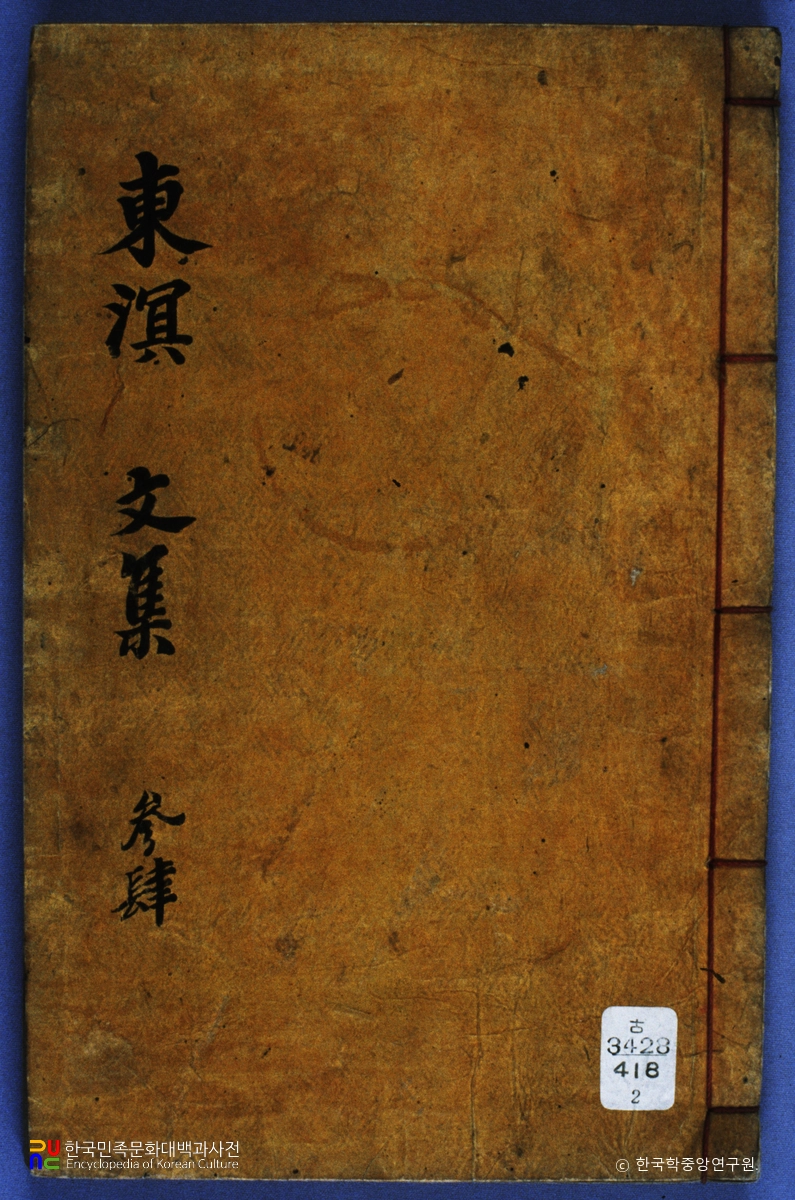 東溟
文集
參肆
古
3428
418
2
한국민족문화대백과사전
Encyclopedia of Korean Culture
© 한국학중앙연구원.